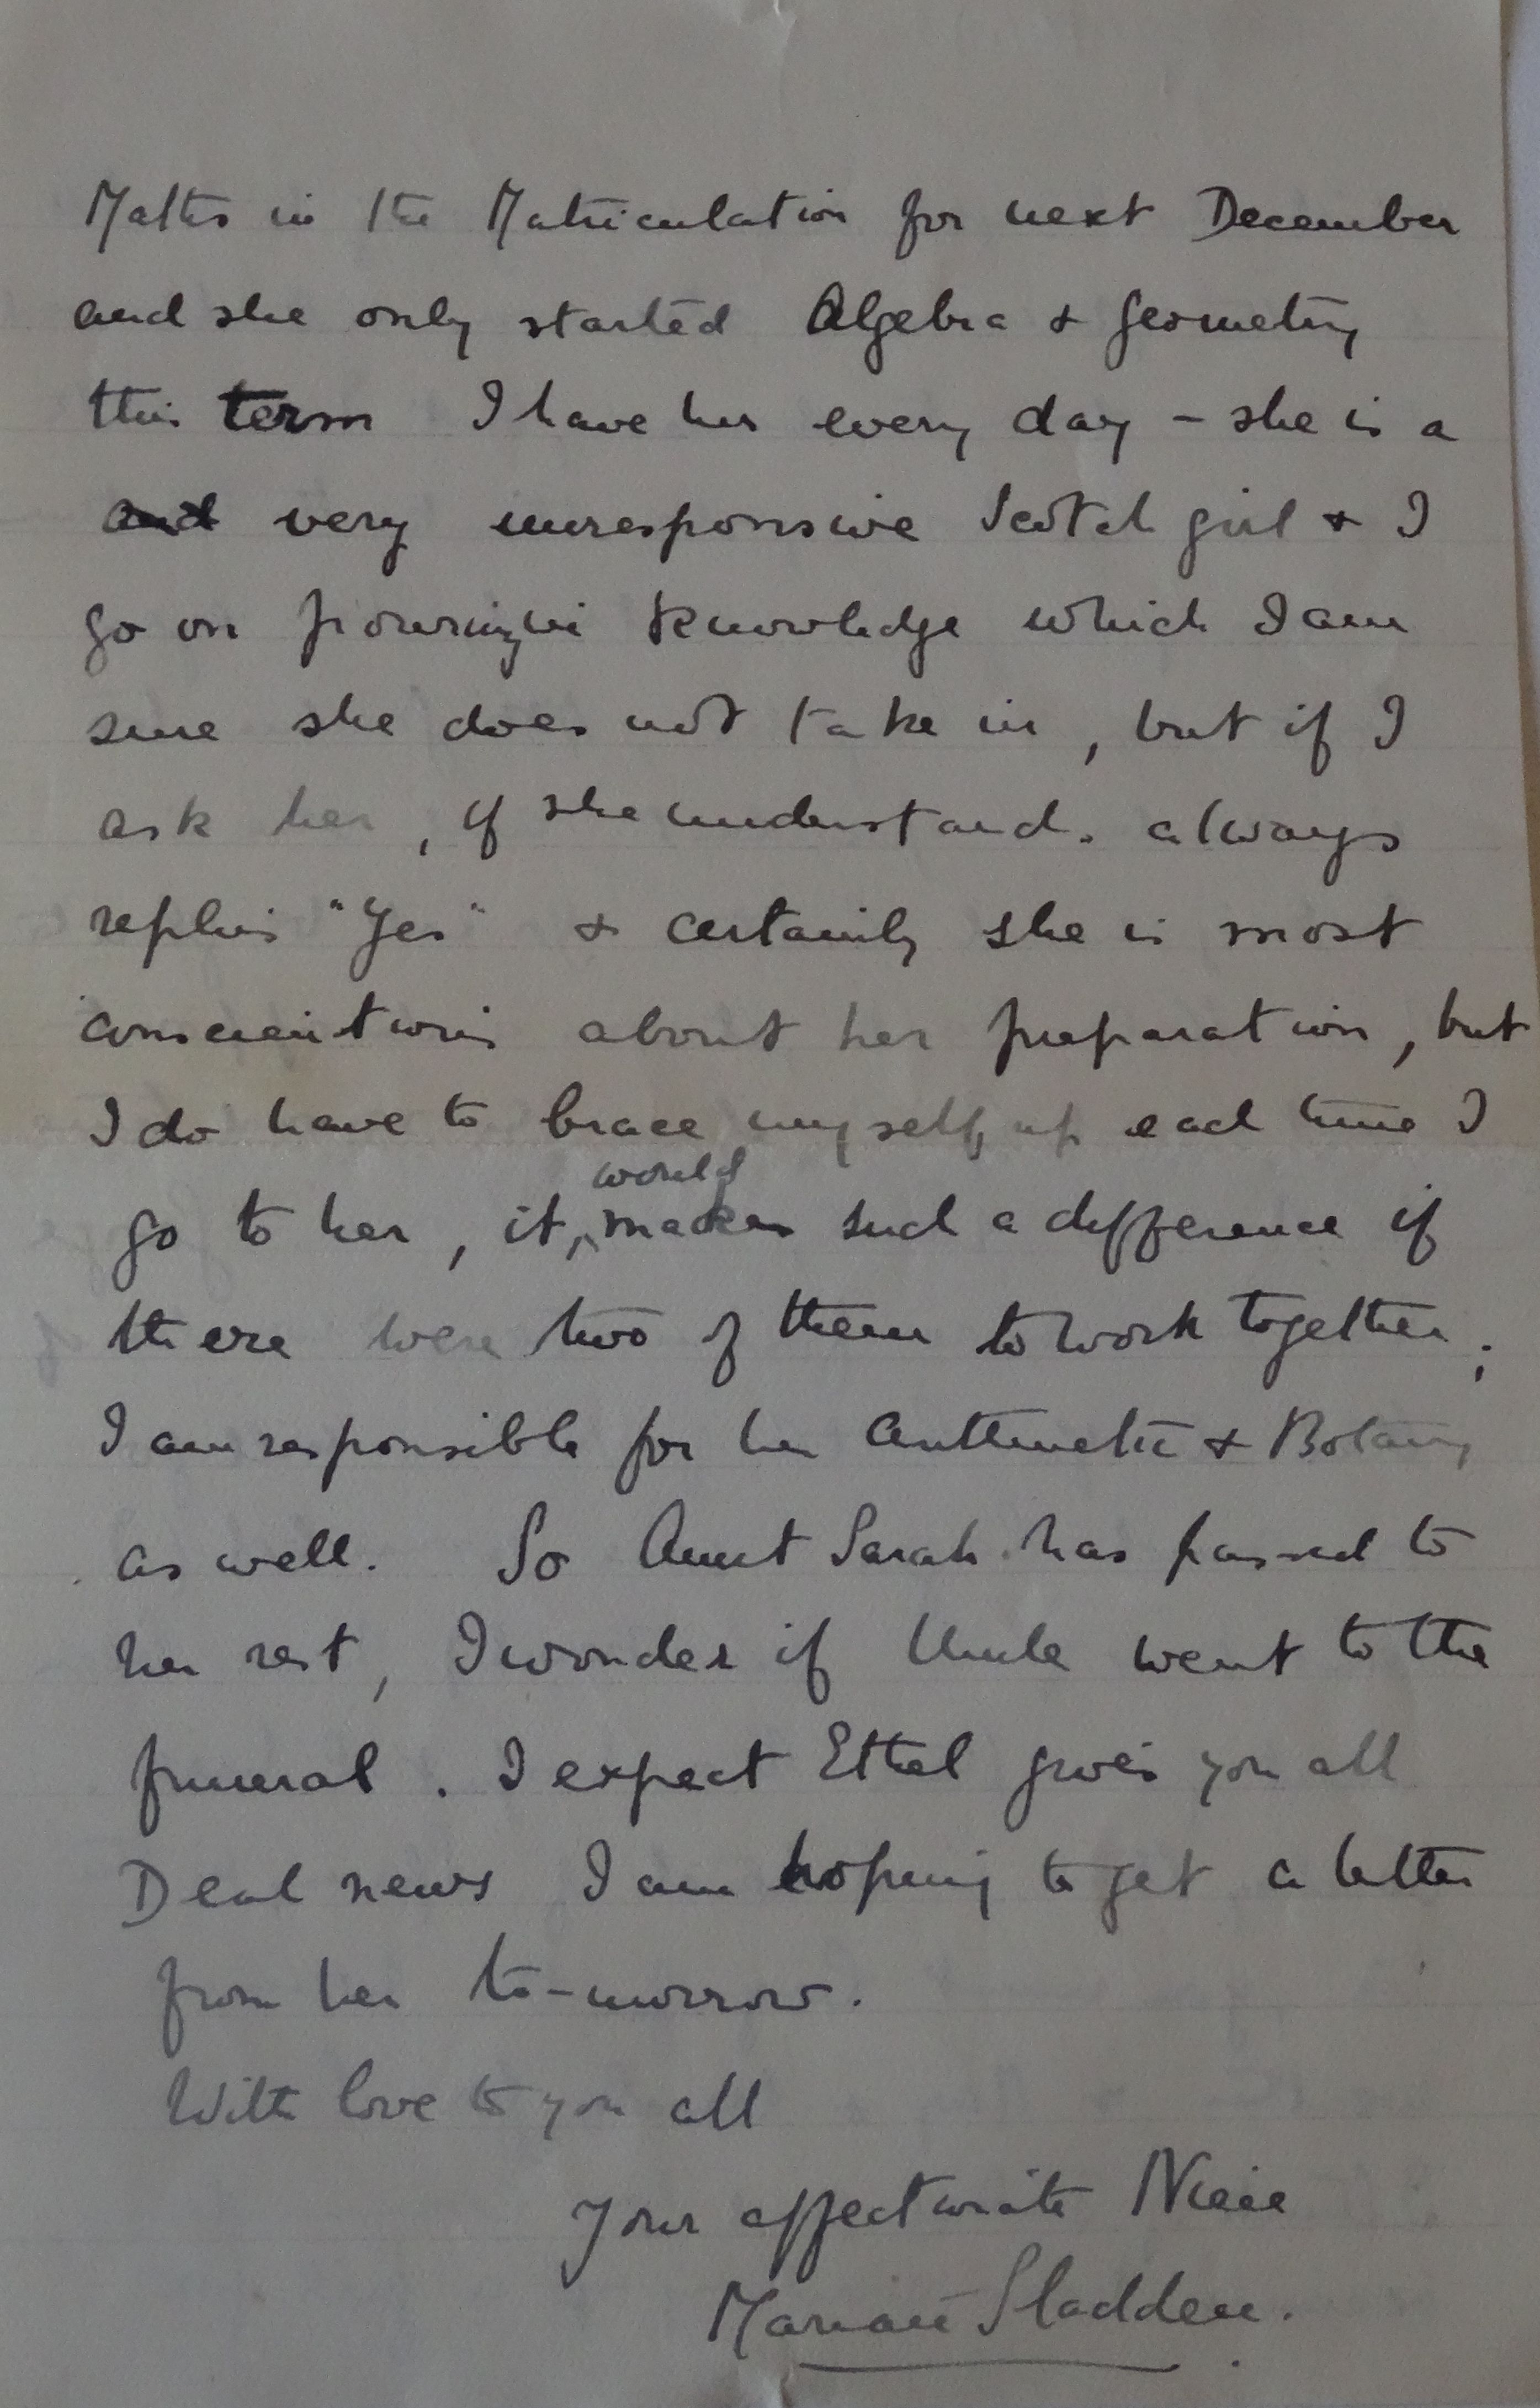 Maths in the Matriculation for next December
and she only started Algebra & Geometry
this term I have her every day – she is a
and very unresponsive Scotch girl & I
go on pouring in knowledge which I am
sure she does not take in, but if I
ask her, if she understands always
replies "Yes" & certainly she is most
conscientious about her preparation, but
I do have to brace myself up each time I
would
go to her, it, makes such a difference if
there were two of them to work together;
I am responsible for her Arithmetic & Botany
as well. So Aunt Sarah has passed to
her rest, I wonder if Uncle went to the
funeral. I expect Ethel gives you all
Deal news I am hoping to get a letter
from her to-morrow.
With love to you all
Your affectionate Niece
Marian Sladden.